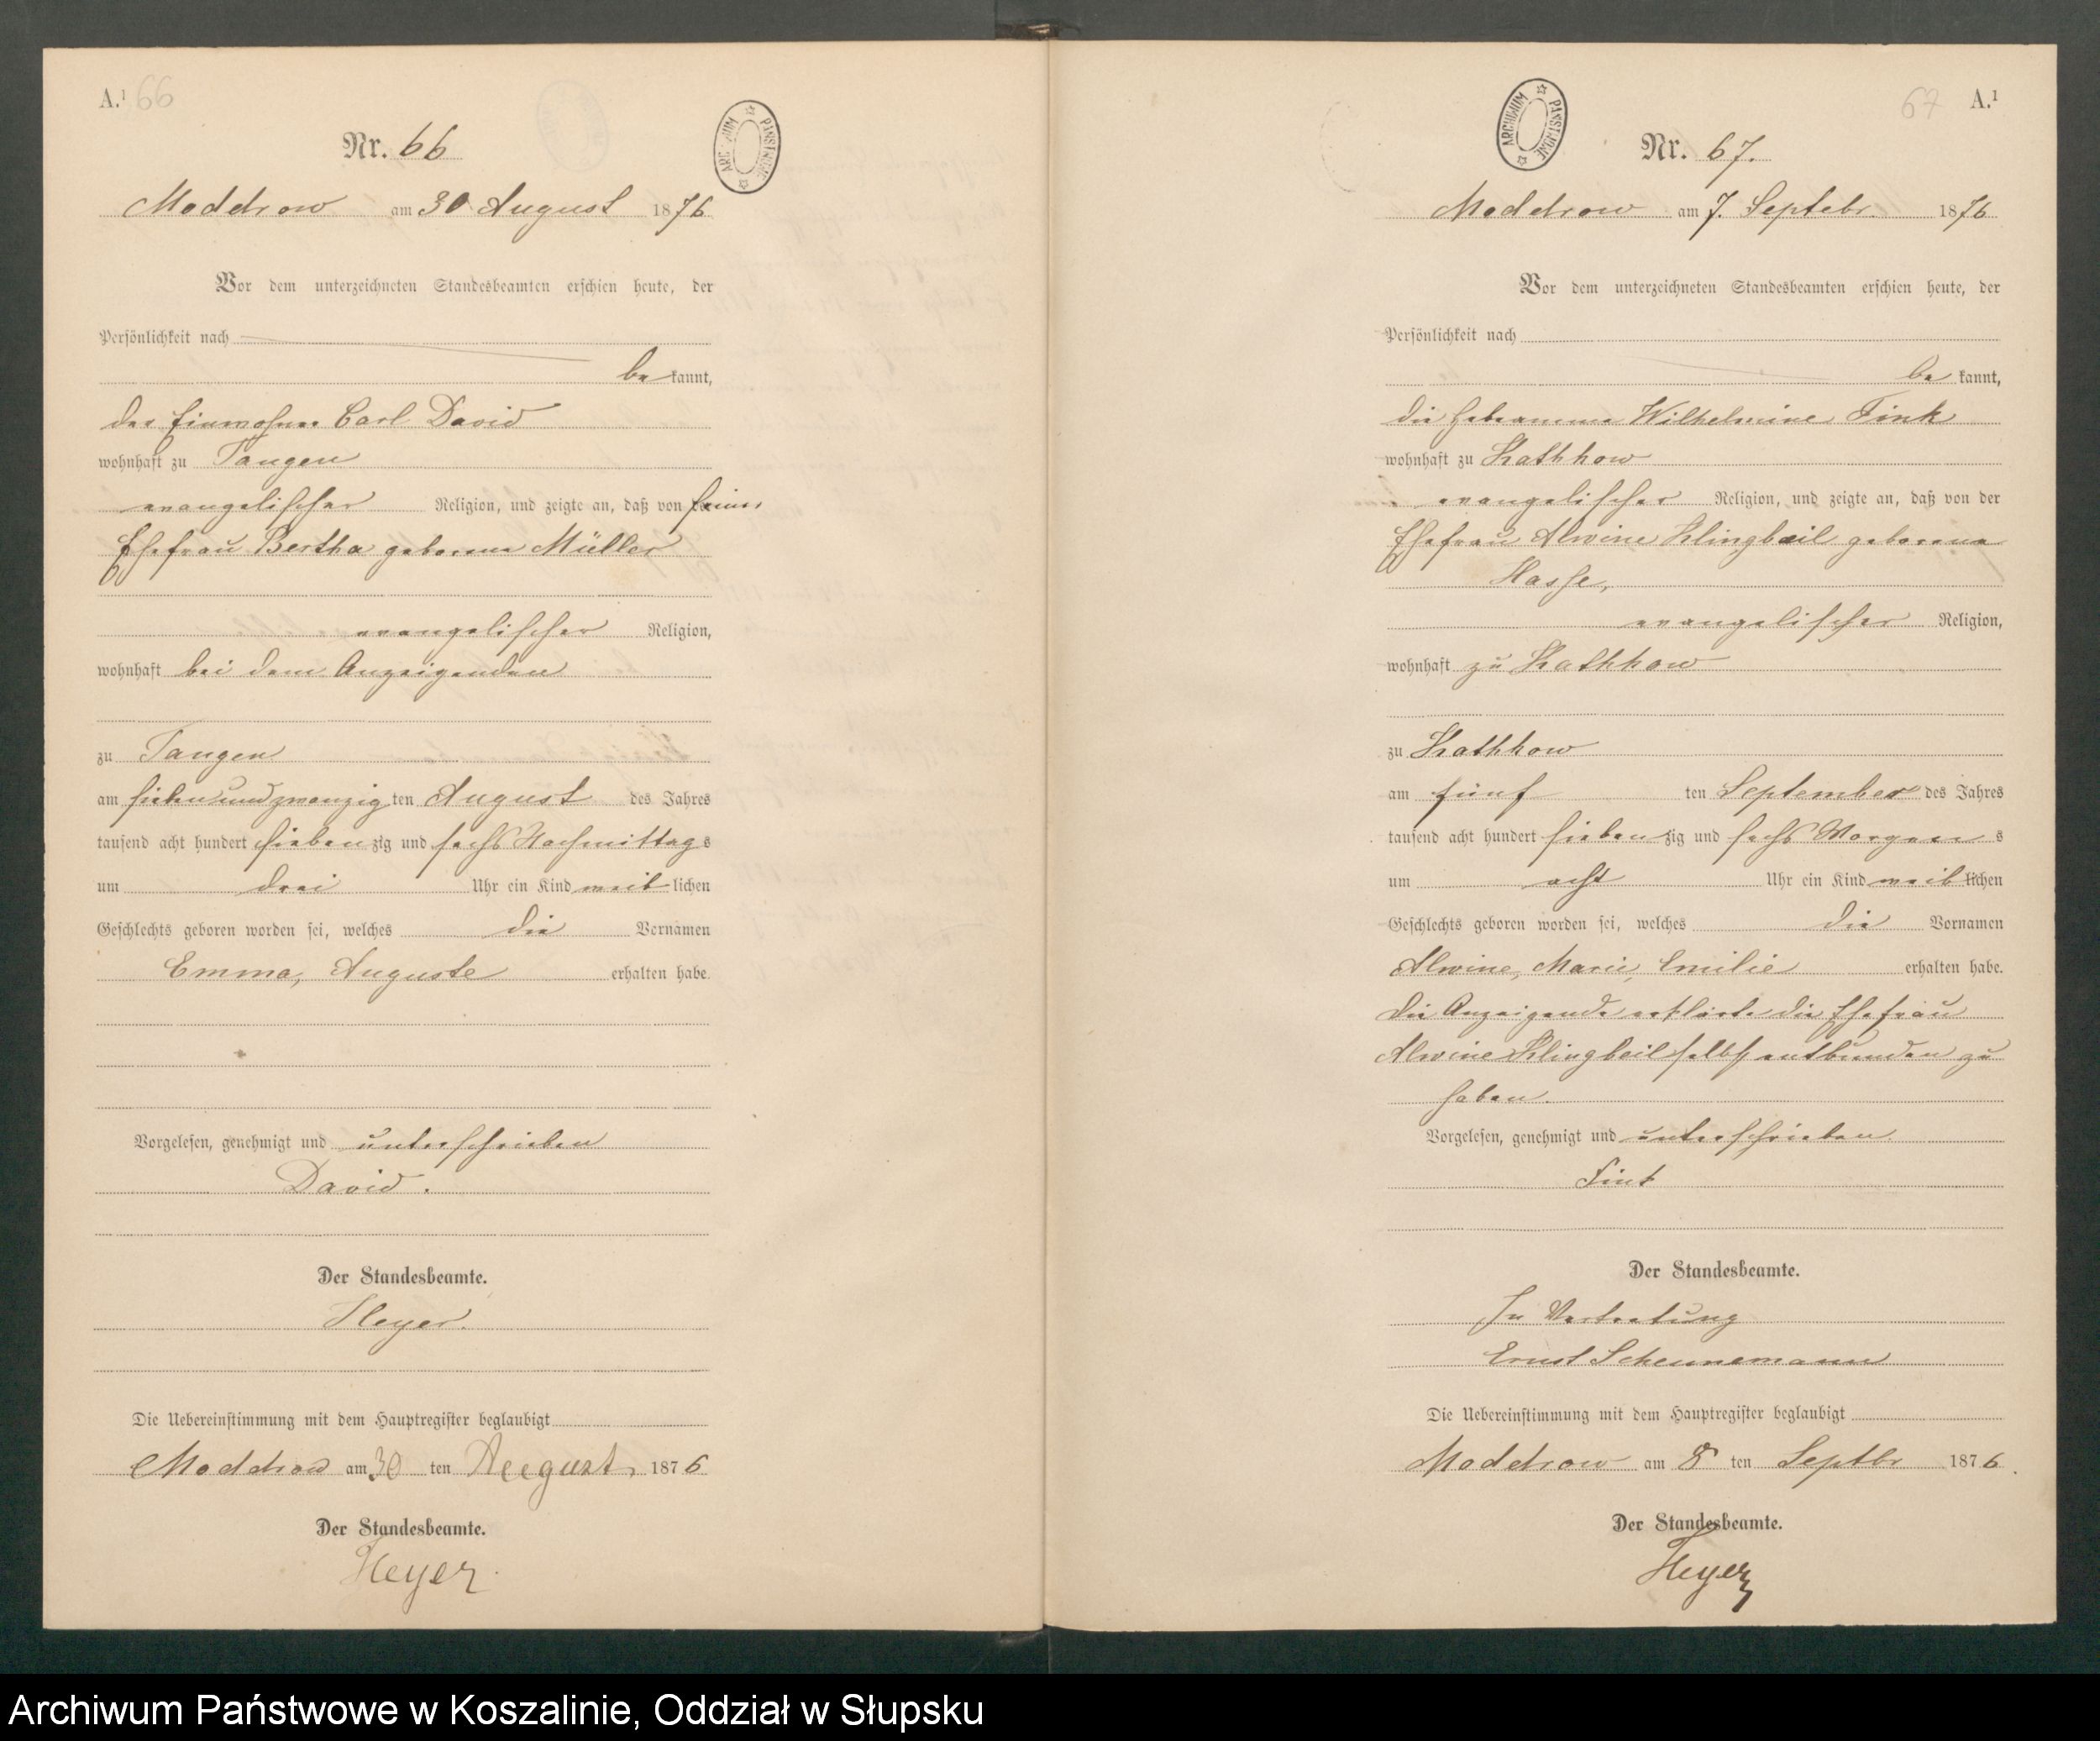 A.¹ 66
ARCHIWUM PAŃSTWOWE
Nr. 66
Moddrow am 30 August 1876
Vor dem unterzeichneten Standesbeamten erschien heute, der
Persönlichkeit nach
be kannt,
der Einwohner Carl David
wohnhaft zu Tangen
evangelischer Religion, und zeigte an, daß von seiner
Ehefrau Bertha geborene Müller
evangelischer Religion,
wohnhaft bei dem Anzeigenden
zu Tangen
am sieben und zwanzig ten August des Jahres
tausend acht hundert sieben zig und sechs Nachmittag s
um drei Uhr ein Kind weib lichen
Geschlechts geboren worden sei, welches die Vornamen
Emma, Auguste erhalten habe.
Vorgelesen, genehmigt und unterschrieben
David.
Der Standesbeamte.
Heyer.
Die Uebereinstimmung mit dem Hauptregister beglaubigt
Moddrow am 30 ten August 1876
Der Standesbeamte.
Heyer.
67 A.¹
ARCHIWUM PAŃSTWOWE
Nr. 67.
Moddrow am 7. Septebr. 1876
Vor dem unterzeichneten Standesbeamten erschien heute, der
Persönlichkeit nach
be kannt,
die Hebamme Wilhelmine Fink
wohnhaft zu Kathkow
evangelischer Religion, und zeigte an, daß von der
Ehefrau Alwine Klingbeil geborene
Hasse,
evangelischer Religion,
wohnhaft zu Kathkow
zu Kathkow
am fünf ten September des Jahres
tausend acht hundert sieben zig und sechs Morgen s
um acht Uhr ein Kind weib lichen
Geschlechts geboren worden sei, welches die Vornamen
Alwine, Marie, Emilie erhalten habe.
Die Anzeigende erklärte die Ehefrau
Alwine Klingbeil selbst entbunden zu
haben.
Vorgelesen, genehmigt und unterschrieben
Fink
Der Standesbeamte.
In Vertretung
Ernst Scheunemann
Die Uebereinstimmung mit dem Hauptregister beglaubigt
Moddrow am 8 ten Septbr 1876.
Der Standesbeamte.
Heyer
Archiwum Państwowe w Koszalinie, Oddział w Słupsku